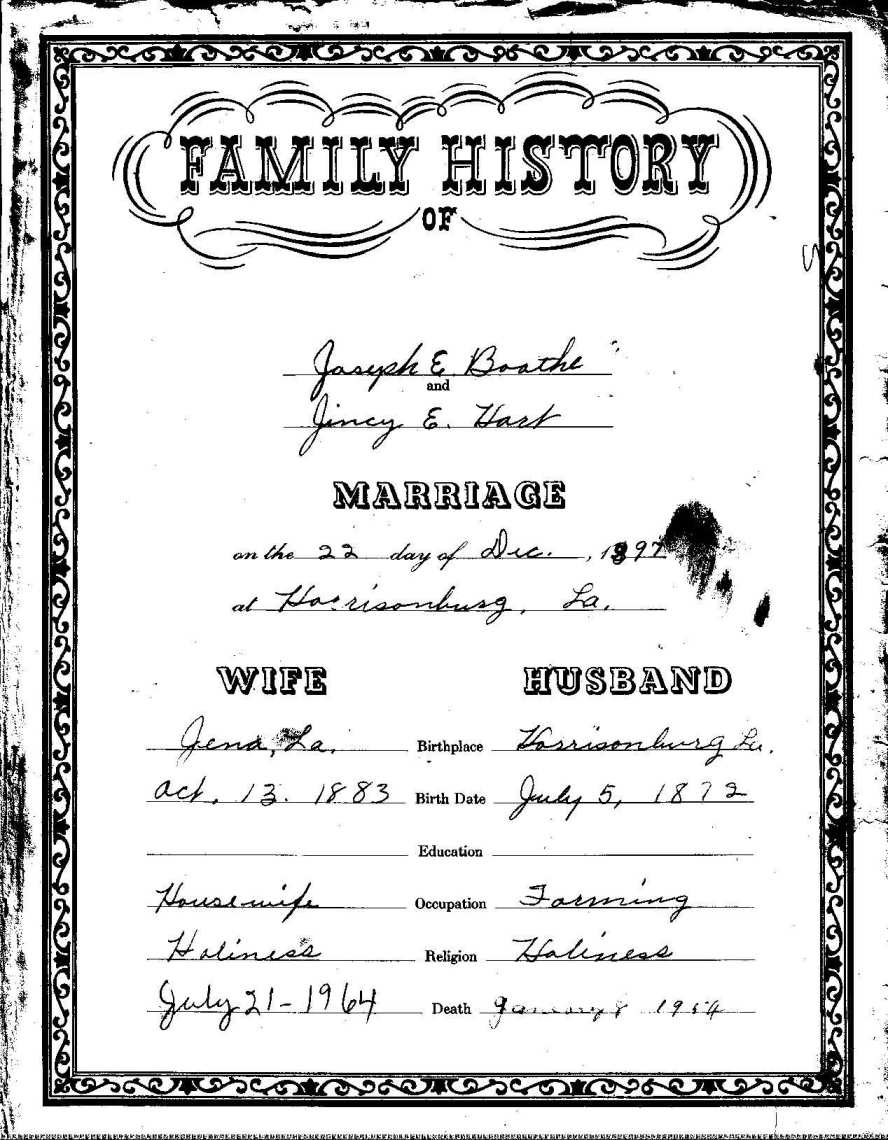 FAMILY HISTORY
OF
Joseph E. Boothe
and
Jincy E. Hart
MARRIAGE
on the 22 day of Dec. , 1897
at Harrisonburg, La.
WIFE HUSBAND
Jena, La. Birthplace Harrisonburg La.
Oct. 13. 1883 Birth Date July 5, 1872
Education
Housewife Occupation Farming
Holiness Religion Holiness
July 21-1964 Death January 8 1954